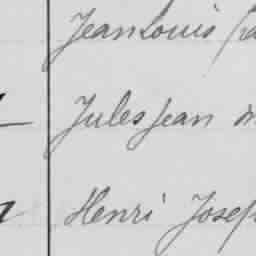 Jean Louis
Jules Jean
Henri Joseph